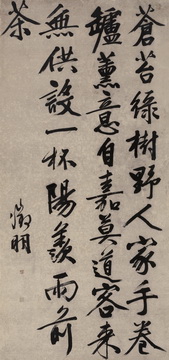 蒼苔綠樹野人家手卷
罏薰意自嘉莫道客來
無供設一杯陽羨雨前
茶
徵明